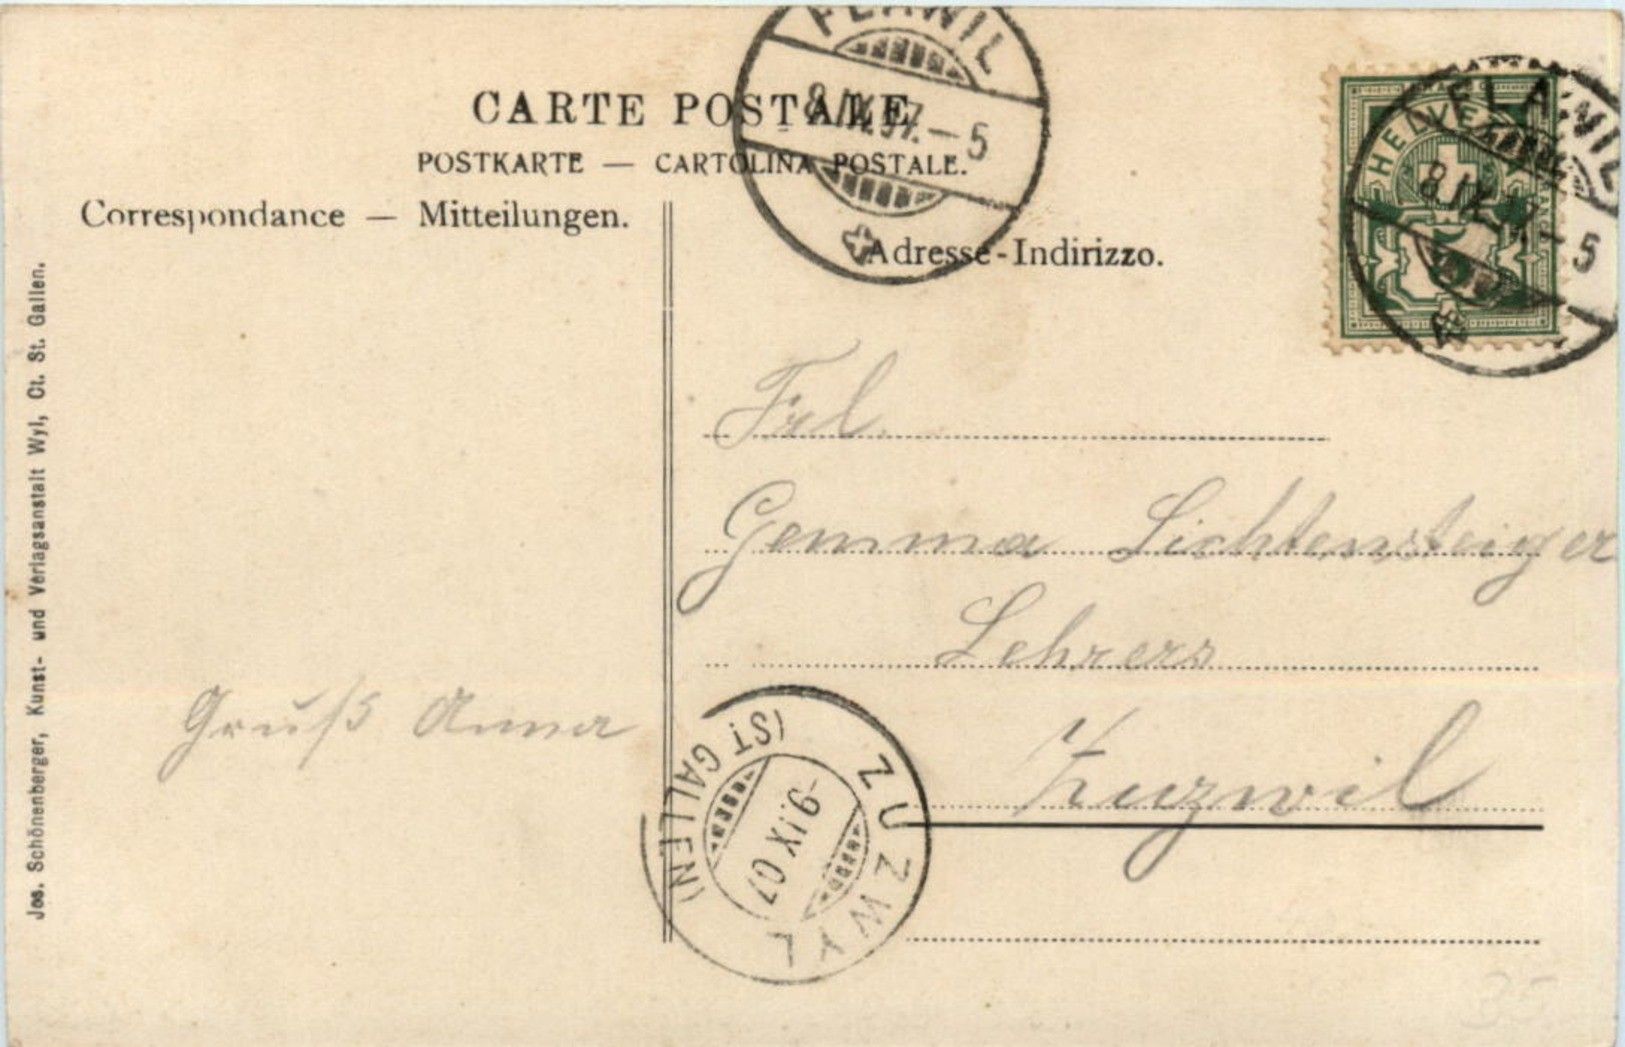 FLAWIL
8.IX.07.–5
CARTE POSTALE
POSTKARTE — CARTOLINA POSTALE.
Correspondance — Mitteilungen.
Adresse-Indirizzo.
HELVETIA
FLAWIL
8.IX.07.–5
Jos. Schönenberger, Kunst- und Verlagsanstalt Wyl, Ct. St. Gallen.
Frl.
Gemma Lichtensteiger
Lehrers
Zuzwil
Gruß Anna
ZUZWYL
(ST. GALLEN)
-9.IX.07
35